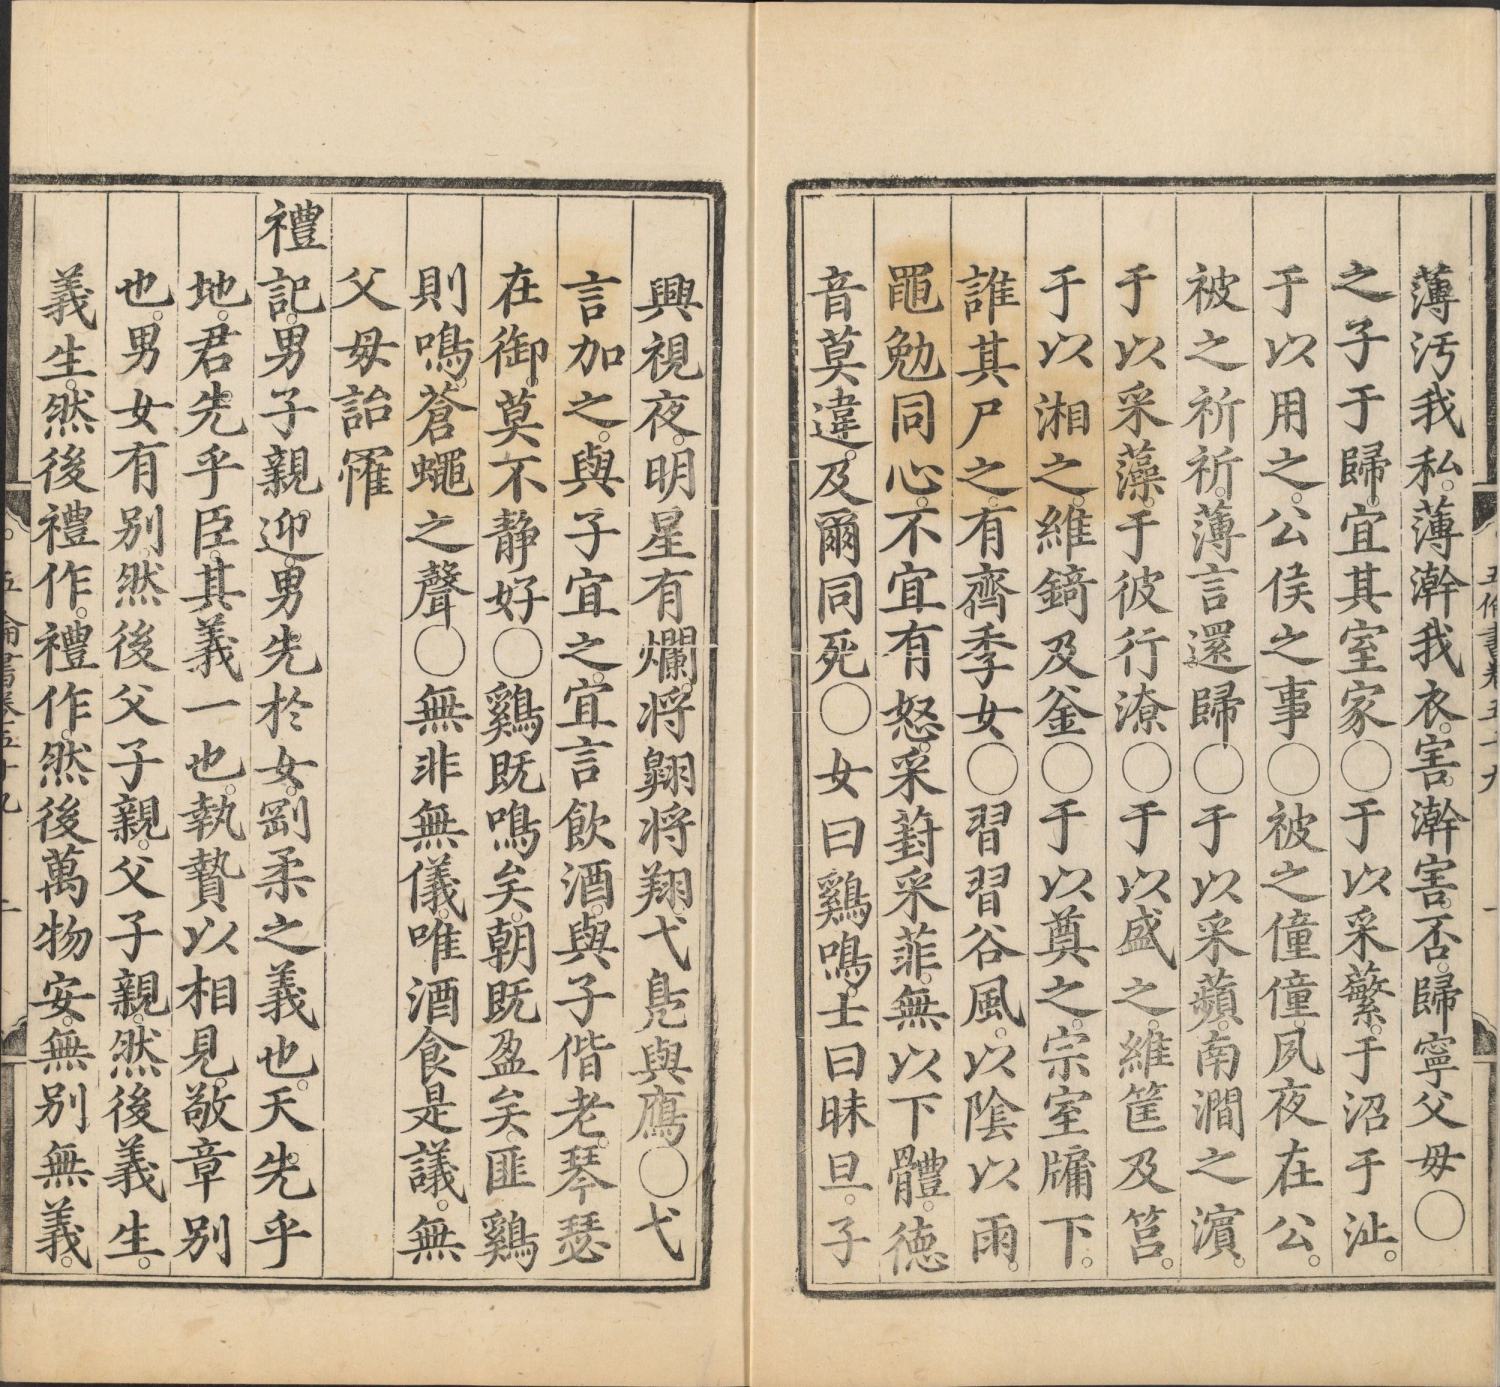 薄汚我私。薄澣我衣。害澣害否。歸寧父母〇
之子于歸。宜其室家〇于以采蘩。于沼于沚。
于以用之。公侯之事〇被之僮僮。夙夜在公。
被之祈祈。薄言還歸〇于以采蘋。南澗之濵。
于以采藻。于彼行潦〇于以盛之。維筐及筥。
于以湘之。維錡及釜〇于以奠之。宗室牖下。
誰其尸之。有齊季女〇習習谷風。以隂以雨。
黽勉同心。不宜有怒。采葑采菲。無以下體。德
音莫違。及爾同死〇女曰鷄鳴。士曰昧旦。子
興視夜。明星有爛。將翱將翔。弋鳧與鴈〇弋
言加之。與子宜之。宜言飲酒。與子偕老。琴瑟
在御。莫不静好〇鷄既鳴矣。朝既盈矣。匪鷄
則鳴。蒼蠅之聲〇無非無儀。唯酒食是議。無
父母詒罹
禮記。男子親迎。男先於女。剛柔之義也。天先乎
地。君先乎臣。其義一也。執贄以相見。敬章别
也。男女有别。然後父子親。父子親。然後義生。
義生。然後禮作。禮作。然後萬物安。無别無義。
五倫書卷五十九 一
五倫書卷五十九 二